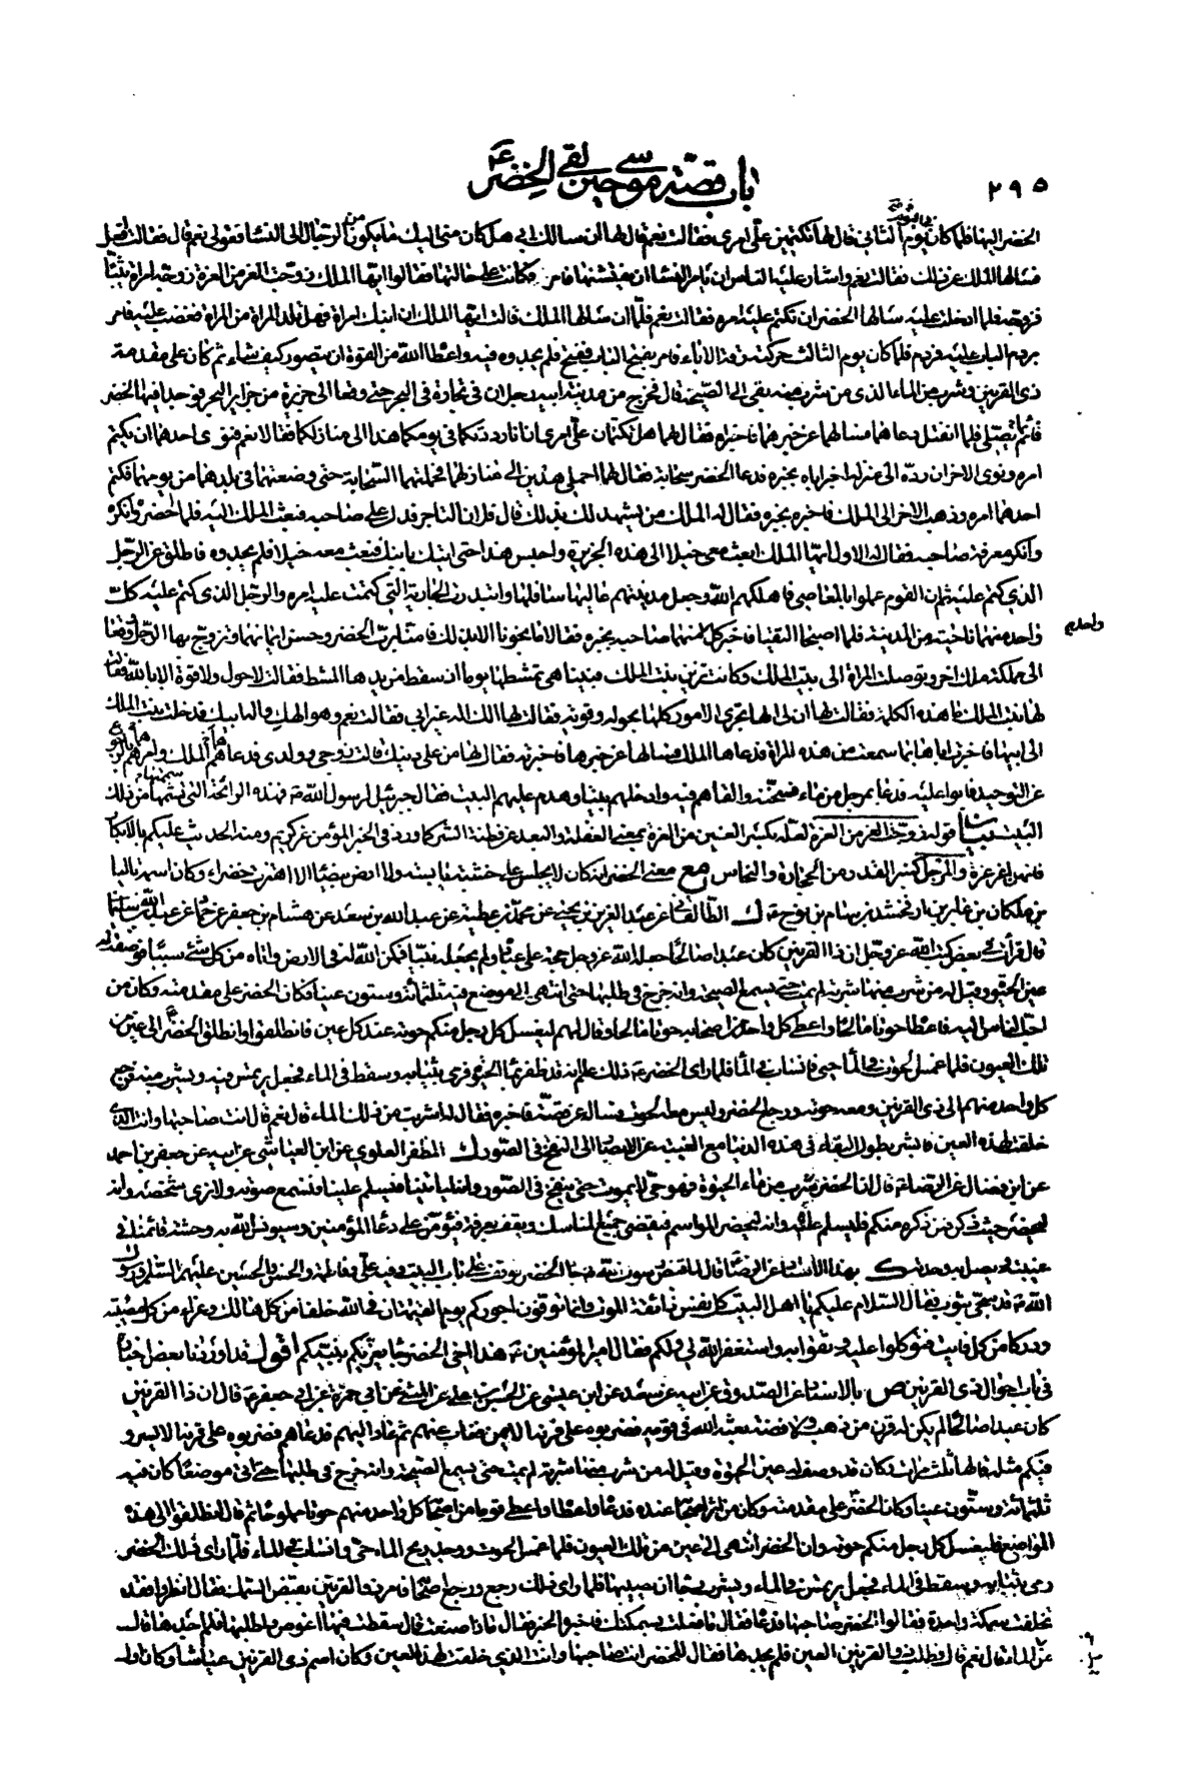 ٢٩٥
باب قصة موسى حين لقي الخضر ع
الخضر اليها فلما كان اليوم الثاني قال لها تكتمين علي امري فقالت نعم قال لها ان سالك ابي هل كان مني اليك ما يكون من الرجال الى النساء فقولي نعم قال فقالت افعل
فسالها الملك عن ذلك فقالت نعم واشار عليه الناس ان يامر النساء ان يفتشنها فامر وكانت على حالتها فقالوا ايها الملك زوجت الغر من الغرة زوجه امراة ثيبا
فزوجه فلما ادخلت عليه سالها الخضر ان تكتم عليه امره فقالت نعم فلما ان سالها الملك قالت ايها الملك ان ابنك امراة فهل تلد المراة من المراة فغضب عليه فامر
بردم الباب عليه فردم فلما كان يوم الثالث حركته رقة الاباء فامر بفتح الباب ففتح فلم يجدوه فيه واعطاه الله من القوة ان يتصور كيف شاء ثم كان على مقدمة
ذي القرنين وشرب من الماء الذي من شرب منه بقي الى الصيحة قال فخرج من مدينة ابيه رجلان في تجارة في البحر حتى وقعا الى جزيرة من جزاير البحر فوجدا فيها الخضر
قائما يصلي فلما انفتل دعاهما فسالهما عن خبرهما فاخبراه فقال لهما هل تكتمان علي امري ان انا رددتكما في يومكما هذا الى منازلكما فقالا نعم فنوى احدهما ان يكتم
امره ونوى الاخر ان رده الى منزله اخبر اباه بخبره فدعا الخضر سحابة فقال لها احملي هذين الى منازلهما فحملتهما السحابة حتى وضعتهما في بلدهما من يومهما فكتم
احدهما امره وذهب الاخر الى الملك فاخبره بخبره فقال له الملك من يشهد لك بذلك قال فلان التاجر فدل على صاحبه فبعث الملك اليه فلما احضروه انكره
وانكر معرفة صاحبه فقال له الاول ايها الملك ابعث معي خيلا الى هذه الجزيرة واحبس هذا حتى اتيك بابنك فبعث معه خيلا فلم يجدوه فاطلق عن الرجل
الذي كتم عليه ثم ان القوم عملوا بالمعاصي فاهلكهم الله وجعل مدينتهم عاليها سافلها وابتدرت الجارية التي كتمت عليه امره والرجل الذي كتم عليه كل
واحد منهما ناحية من المدينة فلما اصبحا التقيا فاخبر كل واحد منهما صاحبه بخبره فقالا ما نجونا الا بذلك فامنا برب الخضر وحسن ايمانهما وتزوج بها الرجل ووقعا
الى مملكة ملك اخر وتوصلت المراة الى بيت الملك وكانت تزين بنت الملك فبينا هي تمشطها يوما اذ سقط من يدها المشط فقالت لا حول ولا قوة الا بالله فقالت
لها بنت الملك ما هذه الكلمة فقالت لها ان لي الها تجري الامور كلها بحوله وقوته فقالت لها الك اله غير ابي فقالت نعم وهو الهك واله ابيك فدخلت بنت الملك
الى ابيها فاخبرت اباها بما سمعت من هذه المراة فدعاها الملك فسالها عن خبرها فاخبرته فقال لها من على دينك قالت زوجي وولدي فدعاهم الملك وامرهم بالرجوع
عن التوحيد فابوا عليه فدعا بمرجل من ماء فسخنه والقاهم فيه وادخلهم بيتا وهدم عليهم البيت فقال جبرئيل لرسول الله ص فهذه الرائحة التي شممتها من ذلك
البيت بيان قوله زوجت الغر من الغرة لعله بكسر الغين من الغرة بمعنى الغفلة والبعد عن فطنة الشر كما ورد في الخبر المؤمن غر كريم ومنه الحديث عليكم بالابكار
فانهن اغر غرة والمرجل كمنبر القدر من الحجارة والنحاس مع معنى الخضر انه كان لا يجلس على خشبة يابسة ولا ارض بيضاء الا اهتزت خضراء وكان اسمه تاليا
بن ملكان بن عابر بن ارفخشد بن سام بن نوح ع ك الطالقاني عن عبد العزيز بن يحيى عن محمد بن عطية عن عبد الله بن سعد عن هشام بن جعفر عن حماد عن عبد الله بن سليمان
قال قرات في بعض كتب الله عز وجل ان ذا القرنين كان عبدا صالحا جعله الله عز وجل حجة على عباده ولم يجعله نبيا فمكن الله له في الارض واتاه من كل شئ سببا فوصفت له
عين الحيوة وقيل له من شرب منها شربة لم يمت حتى يسمع الصيحة وانه خرج في طلبها حتى انتهى الى موضع فيه ثلثمائة وستون عينا وكان الخضر على مقدمته وكان من
احب الناس اليه فاعطاه حوتا مالحا واعطى كل واحد من اصحابه حوتا مالحا وقال لهم ليغسل كل رجل منكم حوته عند كل عين فانطلقوا وانطلق الخضر الى عين من
تلك العيون فلما غمس الحوت في الماء حيي فانساب في الماء فلما راى الخضر ع ذلك علم انه قد ظفر بماء الحيوة فرمى بثيابه وسقط في الماء فجعل يرتمس فيه ويشرب منه فرجع
كل واحد منهم الى ذي القرنين ومعه حوته ورجع الخضر وليس معه الحوت فساله عن قصته فاخبره فقال له اشربت من ذلك الماء قال نعم قال انت صاحبها وانت الذي
خلقت لهذه العين فابشر بطول البقاء في هذه الدنيا مع الغيبة عن الابصار الى النفخ في الصور ك المظفر العلوي عن ابن العياشي عن ابيه عن جعفر بن احمد
عن ابن فضال عن الرضا ع قال ان الخضر شرب من ماء الحيوة فهو حي لا يموت حتى ينفخ في الصور وانه لياتينا فيسلم علينا فنسمع صوته ولا نرى شخصه وانه
ليحضر حيث ذكر فمن ذكره منكم فليسلم عليه وانه ليحضر المواسم فيقضي جميع المناسك ويقف بعرفة فيؤمن على دعاء المؤمنين وسيونس الله به وحشة قائمنا في
غيبته ويصل به وحدته ك بهذا الاسناد عن الرضا ع قال لما قبض رسول الله ص جاء الخضر فوقف على باب البيت وفيه علي وفاطمة والحسن والحسين عليهم السلام ورسول
الله ص قد سجي بثوب فقال السلام عليكم يا اهل البيت كل نفس ذائقة الموت وانما توفون اجوركم يوم القيمة ان في الله خلفا من كل هالك وعزاء من كل مصيبة
ودركا من كل فايت فتوكلوا عليه وثقوا به واستغفر الله لي ولكم فقال امير المؤمنين ع هذا اخي الخضر جاء يعزيكم بنبيكم اقول قد اوردنا بعض اخباره
في باب احوال ذي القرنين ص بالاسناد عن الصدوق عن ابيه عن سعد عن ابن عيسى عن الحسن بن علي عن المثنى عن ابي حمزة عن ابي جعفر ع قال ان ذا القرنين
كان عبدا صالحا لم يكن له قرن من ذهب ولا فضة بعثه الله في قومه فضربوه على قرنه الايمن فغاب عنهم ثم عاد اليهم فدعاهم فضربوه على قرنه الايسر و
فيكم مثله قالها ثلث مرات وكان قد وصف له عين الحيوة وقيل له من شرب منها شربة لم يمت حتى يسمع الصيحة وانه خرج في طلبها حتى اتى موضعا كان فيه
ثلثمائة وستون عينا وكان الخضر على مقدمته وكان من اثر اصحابه عنده فدعاه واعطاه واعطى قوما من اصحابه كل واحد منهم حوتا مملوحا ثم قال انطلقوا الى هذه
المواضع فليغسل كل رجل منكم حوته وان الخضر انتهى الى عين من تلك العيون فلما غمس الحوت ووجد ريح الماء حيي وانساب في الماء فلما راى ذلك الخضر
رمى بثيابه وسقط في الماء فجعل يرتمس في الماء ويشرب رجاء ان يصيبها فلما راى ذلك رجع ورجع اصحابه فامر ذو القرنين بقبض السمك فقال انظروا فقد
تخلفت سمكة واحدة فقالوا الخضر صاحبها فدعاه فقال ما فعلت سمكتك فاخبره الخبر فقال ماذا صنعت قال سقطت فيها اغوص واطلبها فلم اجدها قال
من الماء قال نعم قال فطلب ذو القرنين العين فلم يجدها فقال للخضر انت صاحبها وانت الذي خلقت لهذه العين وكان اسم ذي القرنين عياشا وكان اول